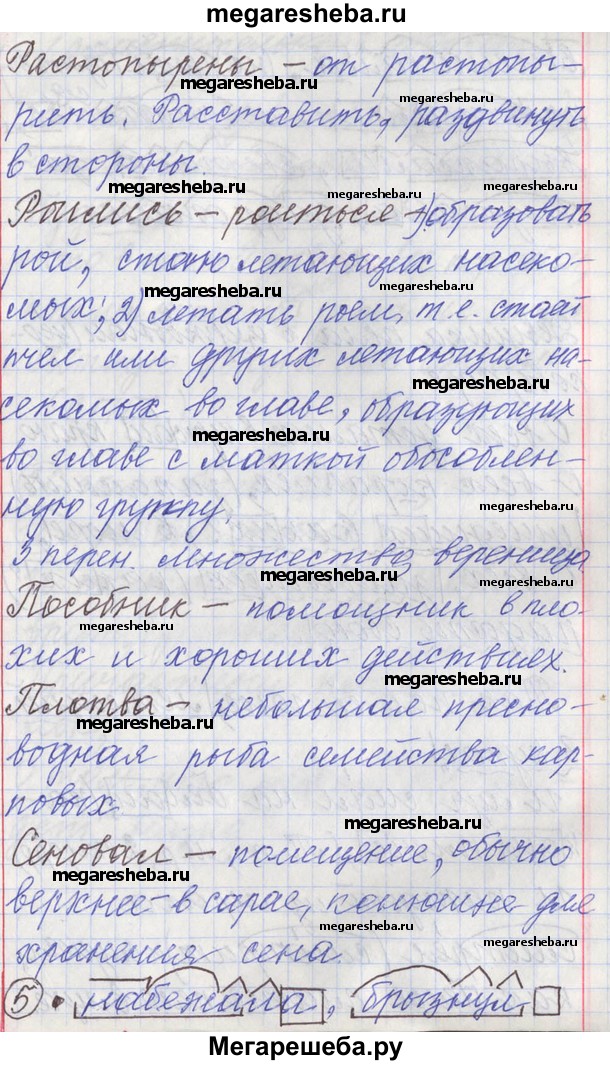 megaresheba.ru
Растопырены – от растопы-
megaresheba.ru
megaresheba.ru
рить. Расставить, раздвинуть
в стороны
megaresheba.ru
megaresheba.ru
Роились – роиться – 1) образовать
рой, стаю летающих насеко-
megaresheba.ru
megaresheba.ru
мых; 2) летать роем, т.е. стаей
пчел или других летающих на-
megaresheba.ru
секомых во главе, образующих
megaresheba.ru
во главе с маткой обособлен-
ную группу.
megaresheba.ru
3 перен. множество, вереница
megaresheba.ru
megaresheba.ru
Пособник – помощник в пло-
megaresheba.ru
хих и хороших действиях.
megaresheba.ru
Плотва – небольшая пресно-
megaresheba.ru
водная рыба семейства кар-
повых.
megaresheba.ru
Сеновал – помещение, обычно
megaresheba.ru
верхнее – в сарае, конюшне для
megaresheba.ru
хранения сена.
megaresheba.ru
5 • набежала, брызнул
Мегарешеба.ру